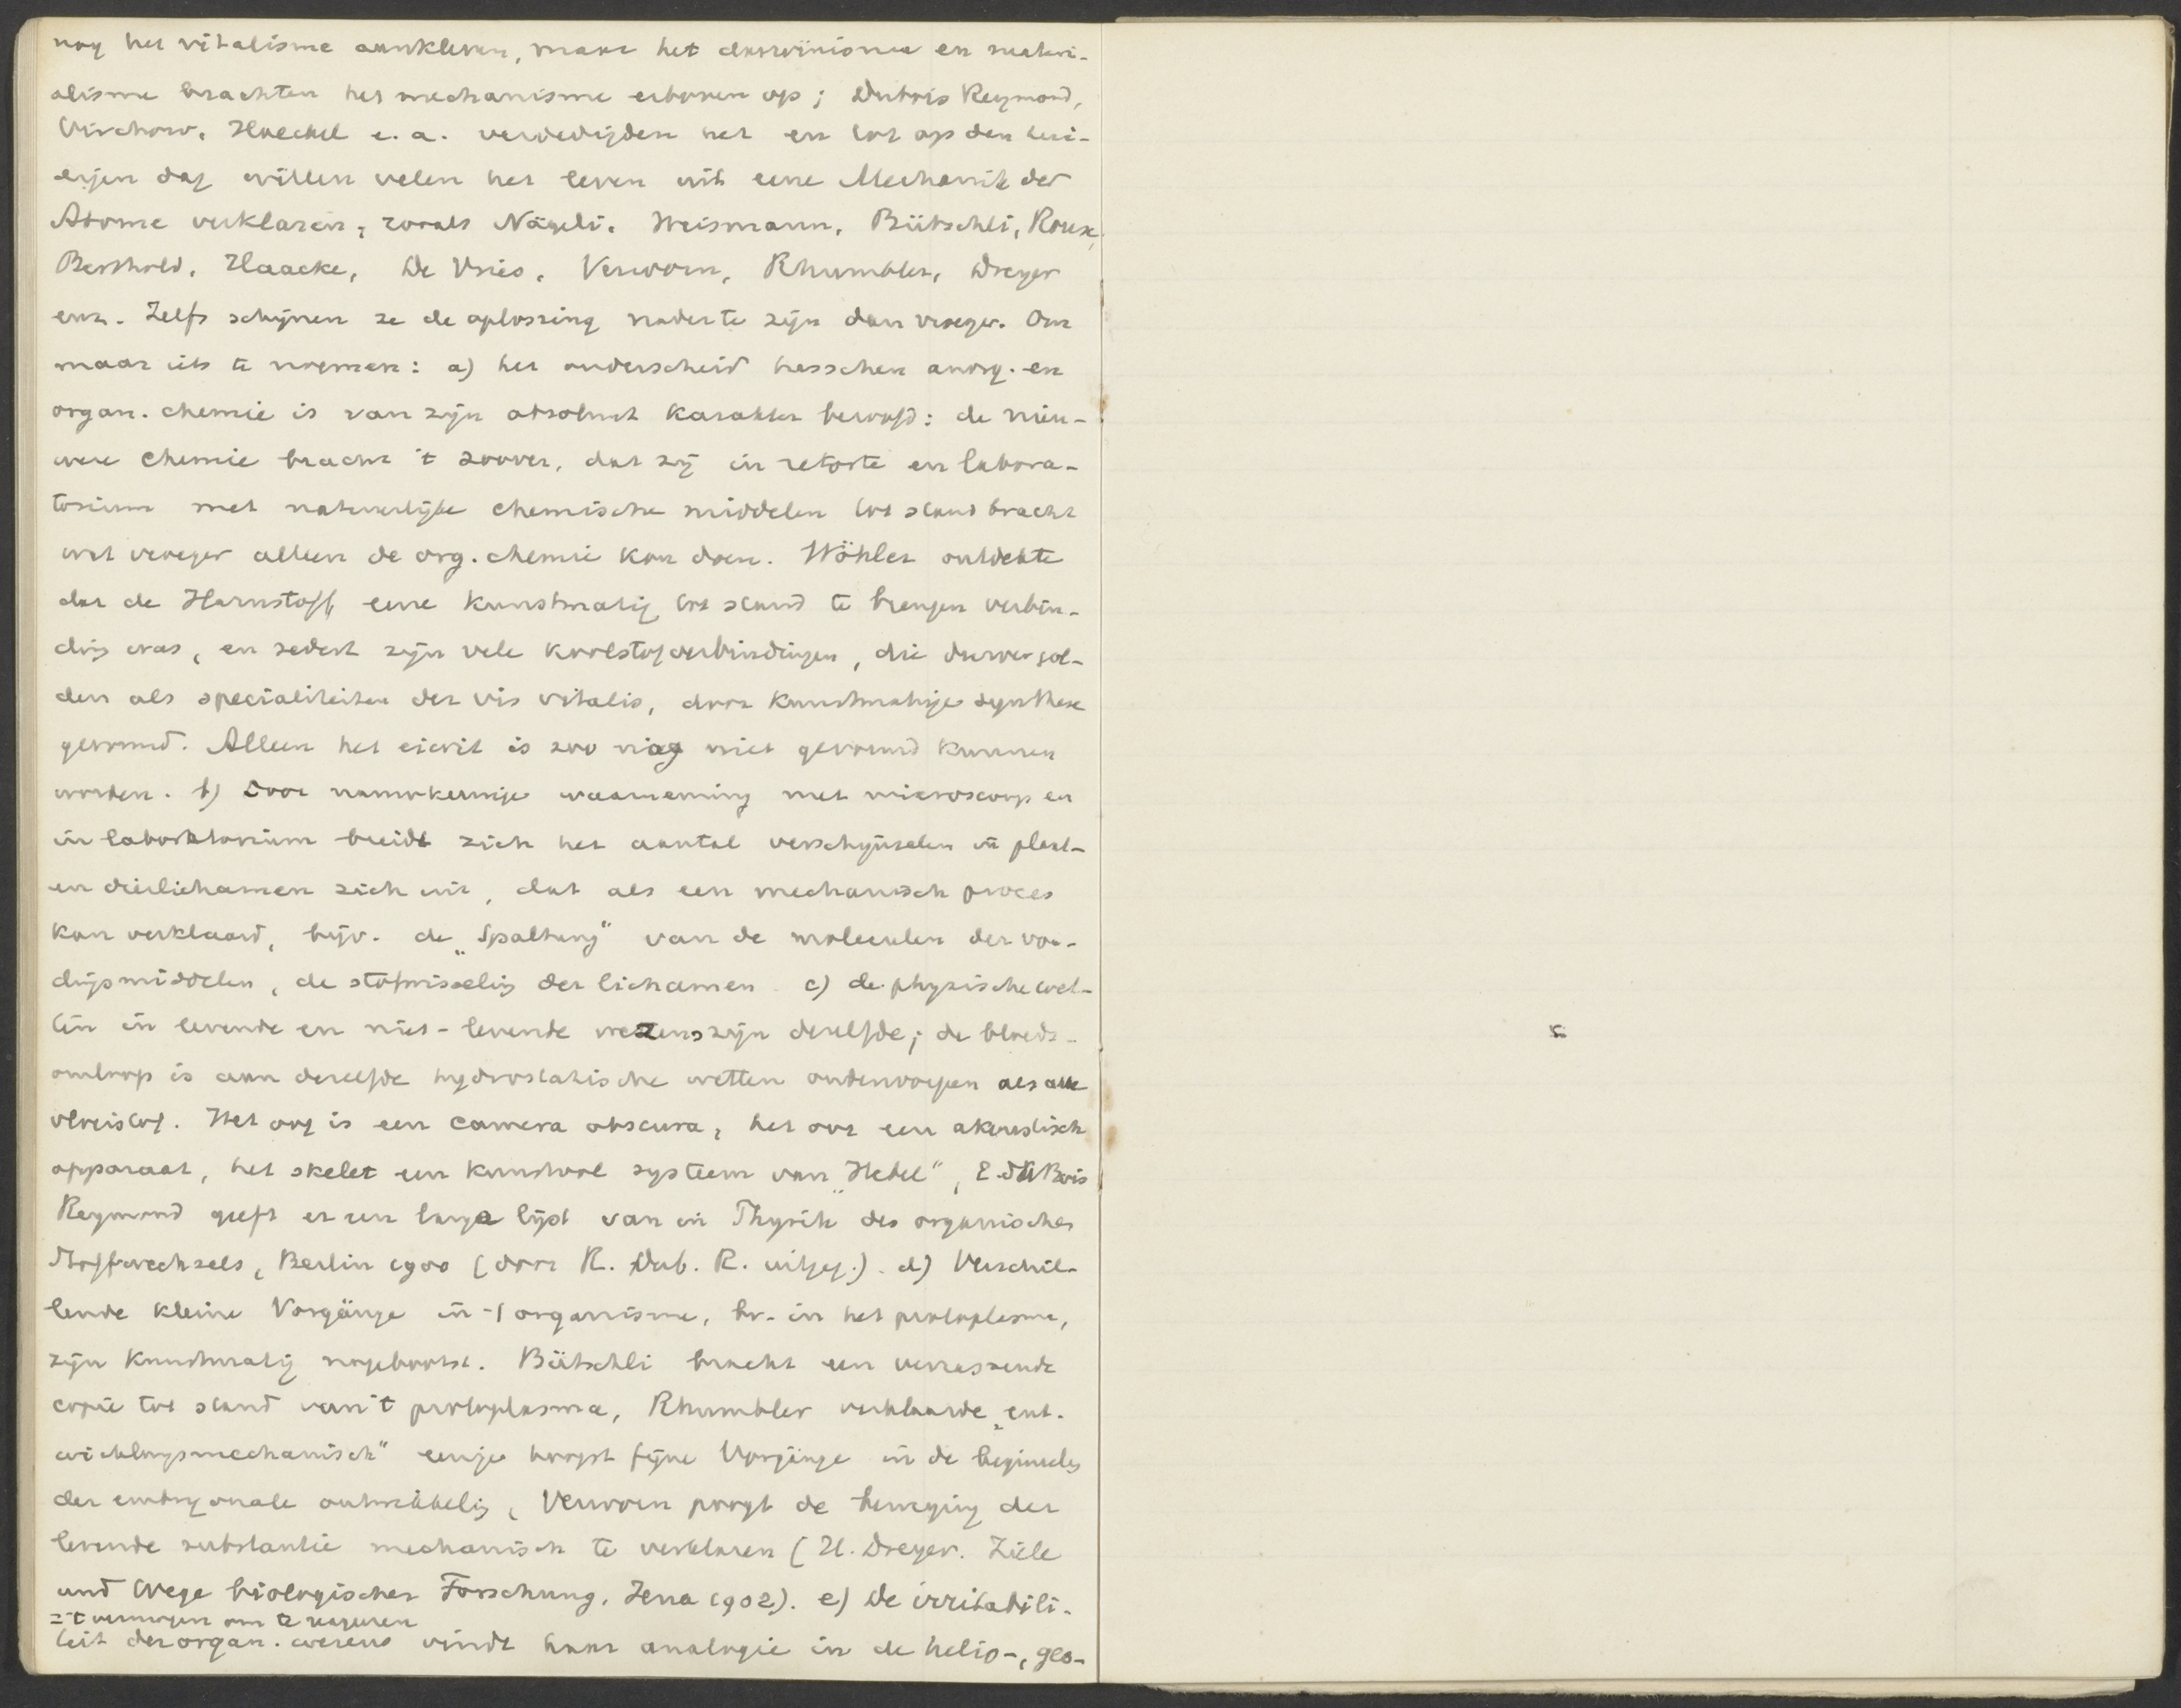 nog het vitalisme aankleven, maar het darwinisme en materi-
alisme brachten het mechanisme erboven op; Dubois Reymond,
Virchow, Haeckel e. a. verdedigden het en tot op den hui-
digen dag willen velen het leven uit eene Mechanik der
Atome verklaren, zooals Nägeli, Weismann, Bütschli, Roux,
Berthold, Haacke, De Vries, Verworn, Rhumbler, Dreyer
enz. Zelfs schijnen ze de oplossing nader te zijn dan vroeger. Om
maar iets te noemen: a) het onderscheid tusschen anorg. en
organ. chemie is van zijn absoluut karakter beroofd: de nieu-
were chemie bracht 't zoover, dat zij in retorte en labora-
torium met natuurlijke chemische middelen tot stand bracht
wat vroeger alleen de org. chemie kon doen. Wöhler ontdekte
dat de Harnstoff, eene kunstmatig tot stand te brengen verbin-
ding was, en sedert zijn vele koolstofverbindingen, die vroeger gol-
den als specialiteiten der vis vitalis, door kunstmatige synthese
gevormd. Alleen het eiwit is zoo nog niet gevormd kunnen
worden. b) Door nauwkeurige waarneming met microscoop en
in laboratorium breidt zich het aantal verschijnselen in plant-
en dierlichamen zich uit, dat als een mechanisch proces
kan verklaard, bijv. de „Spaltung" van de moleculen der voe-
dingsmiddelen, de stofwisseling der lichamen. c) de physische wet-
ten in levende en niet-levende wezens zijn dezelfde; de bloeds-
omloop is aan dezelfde hydrostatische wetten onderworpen als alle
vloeistof. Het oog is een camera obscura, het oor een akoustisch
apparaat, het skelet een kunstvol systeem van „Hebel", E. du Bois
Reymond geeft er een lange lijst van in Physik des organischen
Stoffwechsels, Berlin 1900 (door R. Dub. R. uitgeg.). d) Verschil-
lende kleine Vorgänge in 't organisme, bv. in het protoplasma,
zijn kunstmatig nagebootst. Bütschli bracht een verrassende
copie tot stand van 't protoplasma, Rhumbler verklaarde „ent-
wicklungsmechanisch" eenige hoogst fijne Vorgänge in de beginselen
der embryonale ontwikkeling, Verworn poogt de beweging der
levende substantie mechanisch te verklaren (H. Dreyer. Ziele
und Wege biologischer Forschung, Jena 1902). e) De irritabili-
= 't vermogen om te reageren
teit der organ. wezens vindt haar analogie in de helio-, geo-